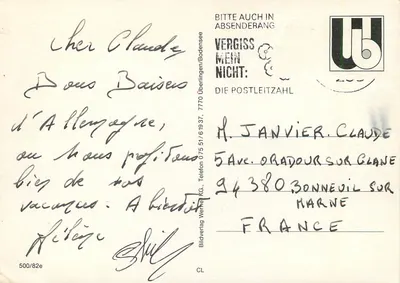 Cher Claude
Bons Baisers
d'Allemagne,
ou nous profitons
bien de nos
vacances. A bientôt
Hélène
500/82e
Bildverlag Werner KG., Telefon 0 75 51/6 19 37, 7770 Überlingen/Bodensee
CL
BITTE AUCH IN
ABSENDERANG
VERGISS
MEIN
NICHT:
DIE POSTLEITZAHL
Üb
M. JANVIER. CLAUDE
5 AVC. ORADOUR SUR GLANE
94380 BONNEUIL SUR
MARNE
FRANCE